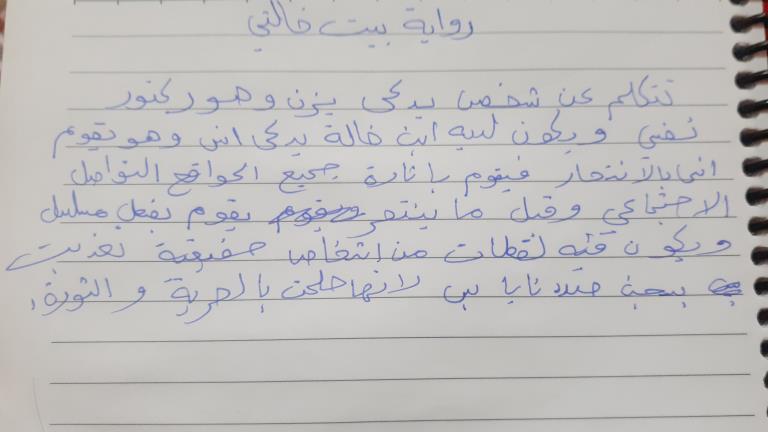 رواية بيت خالتي
تتكلم عن شخص يدعى يزن وهو دكتور
نفسي ويكون لديه ابن خالة يدعى انس وهو يقوم
بالانتحار فيقوم باثارة جميع المواقع التواصل
الاجتماعي وقبل ما ينتحر يقوم بفعل مسلسل
ويكون فيه لقطات من اشخاص حقيقية تعذبت
بسجن لانها حلمت بالحرية و الثورة.